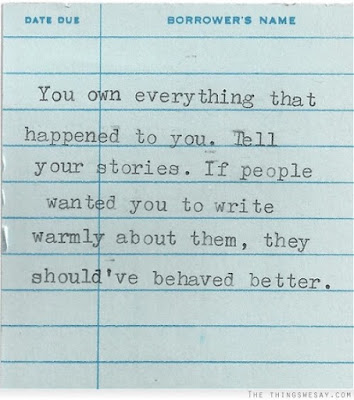 DATE DUE BORROWER'S NAME
You own everything that
happened to you. Tell
your stories. If people
wanted you to write
warmly about them, they
should've behaved better.
THE THINGSWESAY.COM